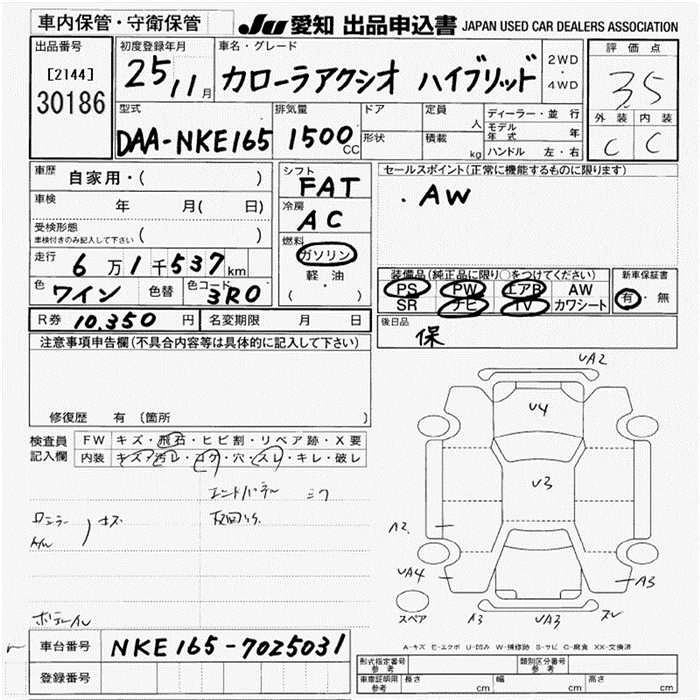 車内保管・守衛保管
JU 愛知 出品申込書 JAPAN USED CAR DEALERS ASSOCIATION
出品番号
[2144]
30186
初度登録年月
25,11月
車名・グレード
カローラアクシオ ハイブリッド
2WD
・
4WD
評価点
35
外装 内装
C C
型式
DAA-NKE165
排気量
1500cc
ドア
形状
定員
人
積載
kg
ディーラー・並行
モデル年式 年
ハンドル 左・右
車歴
自家用・( )
車検 年 月( 日)
受検形態
車検付きのみ記入して下さい ( )
走行 6万1千537km
色 ワイン 色替 色コード 3R0
R券 10,350円 名変期限 月 日
シフト
FAT
冷房
AC
燃料
ガソリン
軽・油
( ・ )
セールスポイント(正常に機能するものに限ります)
・AW
装備品(純正品に限り○をつけてください)
PS PW エアB AW
SR ナビ TV カワシート
新車保証書
有・無
後日品
保
注意事項申告欄(不具合内容等は具体的に記入して下さい)
修復歴 有 〔箇所 〕
検査員記入欄
FW キズ・飛石・ヒビ割・リペア跡・X要
内装 キズ・汚レ・コゲ・穴・スレ・キレ・破レ
キズ
UA2
U4
U3
A2
UA4
A3
スペア
A3
UA3
スレ
A-キズ E-エクボ U-凹み W-補修跡 S-サビ C-腐食 XX-交換済
車台番号 NKE165-7025031
登録番号
形式指定番号
参考
類別区分番号
参考
車庫証明用
参考
長さ cm 幅 cm 高さ cm